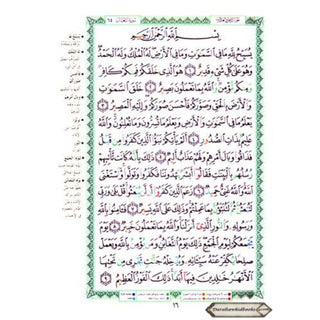 بِسْمِ اللَّهِ الرَّحْمَٰنِ الرَّحِيمِ
يُسَبِّحُ لِلَّهِ مَا فِي السَّمَٰوَٰتِ وَمَا فِي الْأَرْضِ لَهُ الْمُلْكُ وَلَهُ الْحَمْدُ
وَهُوَ عَلَىٰ كُلِّ شَيْءٍ قَدِيرٌ ١ هُوَ الَّذِي خَلَقَكُمْ فَمِنكُمْ كَافِرٌ
وَمِنكُم مُّؤْمِنٌ وَاللَّهُ بِمَا تَعْمَلُونَ بَصِيرٌ ٢ خَلَقَ السَّمَٰوَٰتِ
وَالْأَرْضَ بِالْحَقِّ وَصَوَّرَكُمْ فَأَحْسَنَ صُوَرَكُمْ وَإِلَيْهِ الْمَصِيرُ ٣
يَعْلَمُ مَا فِي السَّمَٰوَٰتِ وَالْأَرْضِ وَيَعْلَمُ مَا تُسِرُّونَ وَمَا تُعْلِنُونَ وَاللَّهُ
عَلِيمٌ بِذَاتِ الصُّدُورِ ٤ أَلَمْ يَأْتِكُمْ نَبَؤُا الَّذِينَ كَفَرُوا مِن قَبْلُ
فَذَاقُوا وَبَالَ أَمْرِهِمْ وَلَهُمْ عَذَابٌ أَلِيمٌ ٥ ذَٰلِكَ بِأَنَّهُ كَانَت تَّأْتِيهِمْ
رُسُلُهُم بِالْبَيِّنَٰتِ فَقَالُوا أَبَشَرٌ يَهْدُونَنَا فَكَفَرُوا وَتَوَلَّوا وَّاسْتَغْنَى
اللَّهُ وَاللَّهُ غَنِيٌّ حَمِيدٌ ٦ زَعَمَ الَّذِينَ كَفَرُوا أَن لَّن يُبْعَثُوا قُلْ بَلَىٰ وَرَبِّي
لَتُبْعَثُنَّ ثُمَّ لَتُنَبَّؤُنَّ بِمَا عَمِلْتُمْ وَذَٰلِكَ عَلَى اللَّهِ يَسِيرٌ ٧ فَـَٔامِنُوا
بِاللَّهِ وَرَسُولِهِ وَالنُّورِ الَّذِي أَنزَلْنَا وَاللَّهُ بِمَا تَعْمَلُونَ خَبِيرٌ ٨ يَوْمَ
يَجْمَعُكُمْ لِيَوْمِ الْجَمْعِ ذَٰلِكَ يَوْمُ التَّغَابُنِ وَمَن يُؤْمِن بِاللَّهِ وَيَعْمَلْ
صَٰلِحًا يُكَفِّرْ عَنْهُ سَيِّـَٔاتِهِ وَيُدْخِلْهُ جَنَّٰتٍ تَجْرِي مِن تَحْتِهَا
الْأَنْهَٰرُ خَٰلِدِينَ فِيهَا أَبَدًا ذَٰلِكَ الْفَوْزُ الْعَظِيمُ ٩
١٦